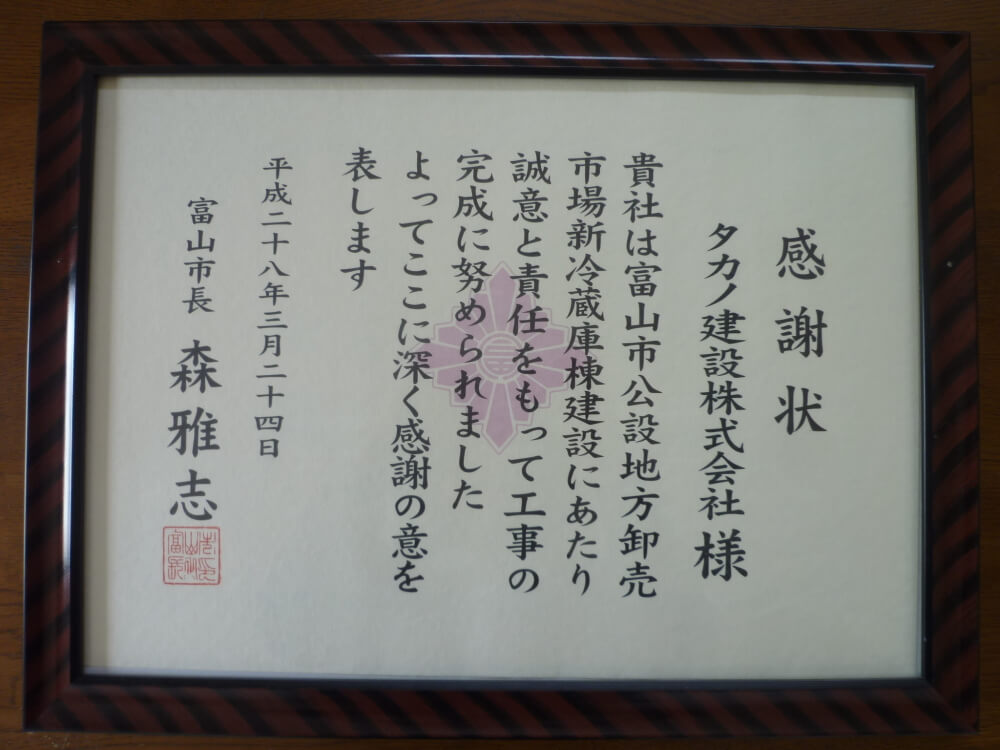 感謝状
タカノ建設株式会社様
貴社は富山市公設地方卸売
市場新冷蔵庫棟建設にあたり
誠意と責任をもって工事の
完成に努められました
よってここに深く感謝の意を
表します
平成二十八年三月二十四日
富山市長 森雅志